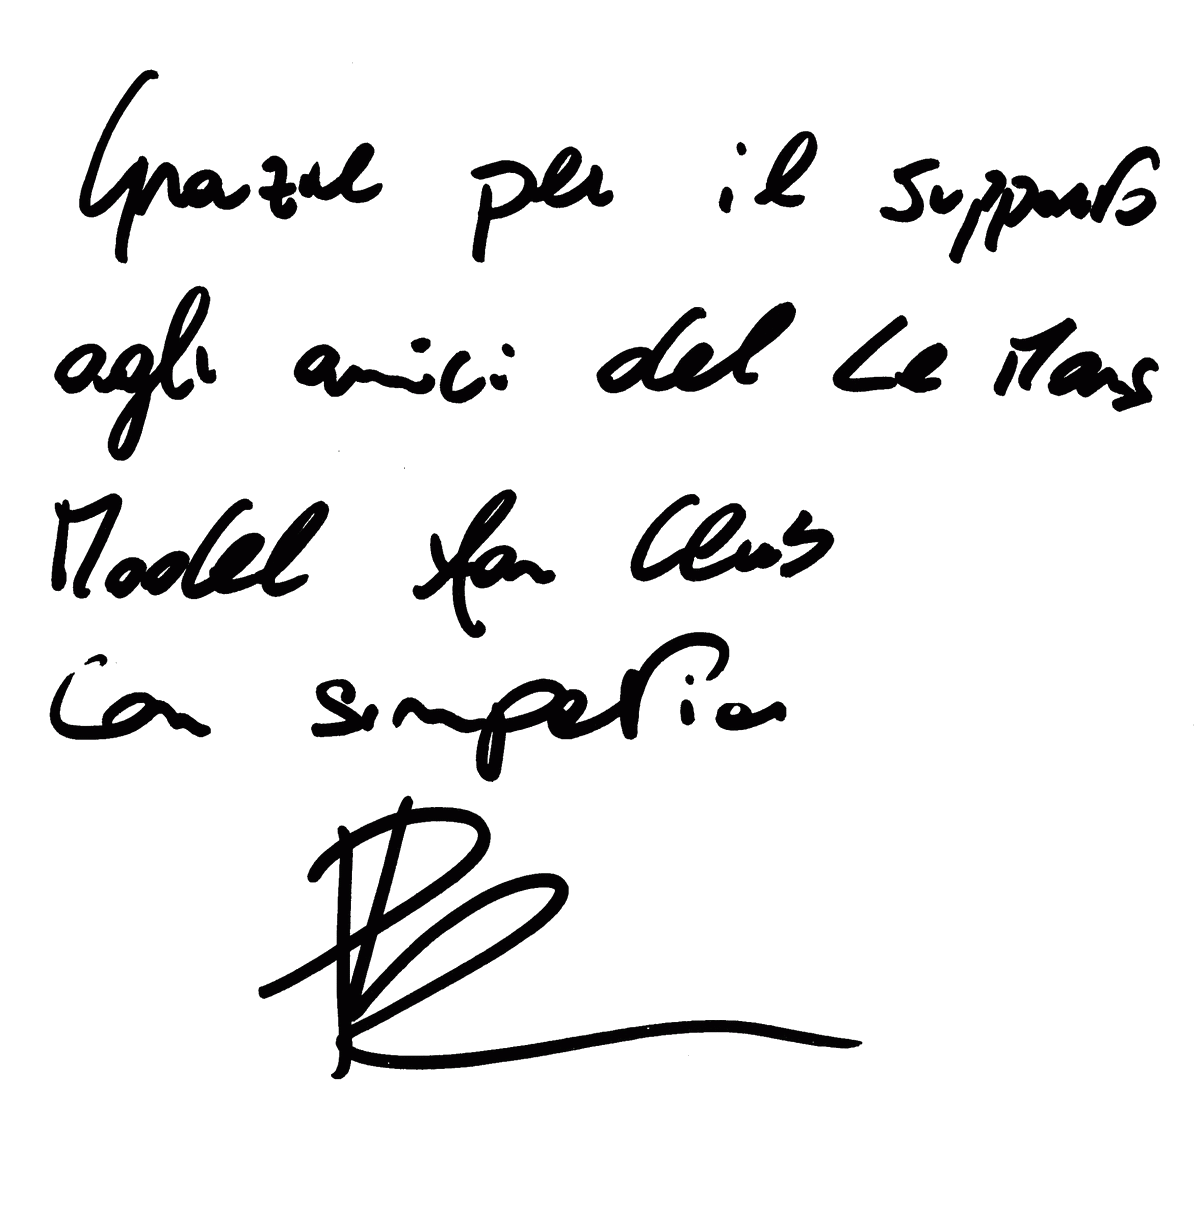 Grazie per il supporto
agli amici del Le Mans
Model Fan Club
Con simpatia